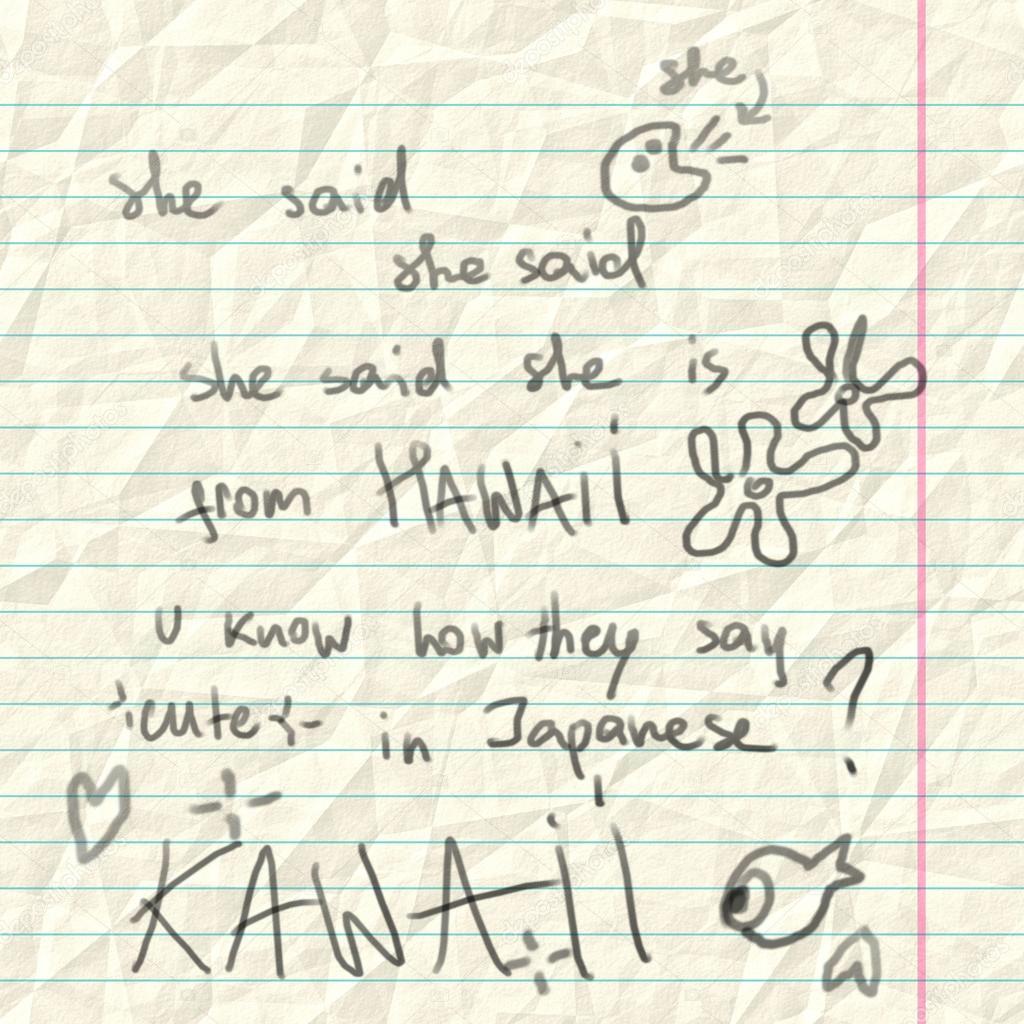 she
she said
she said
she said she is
from HAWAII
U know how they say
'cute' in Japanese ?
KAWAII